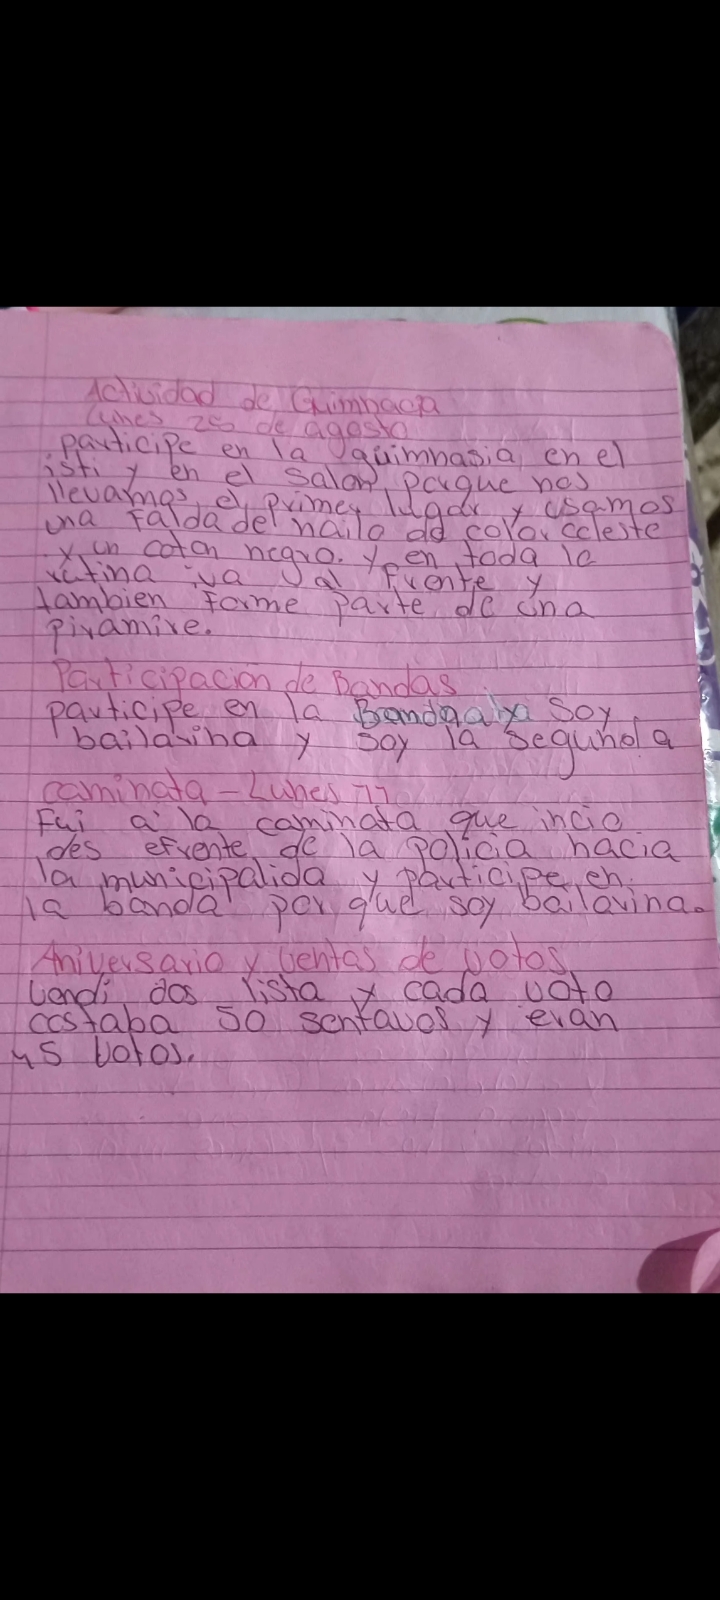 Actividad de Guimnacia
Lunes 25 de agosto
participe en la guimnasia en el
isti y en el salon porque nos
llevamos el primer lugar y usamos
una falda de nailo dd color celeste
y un coton negro. y en toda la
rutina iva al frente y
tambien forme parte de una
piramire.
Participacion de Bandas
participe en la Banda y soy
bailarina y soy la segunda
caminata - Lunes 11
Fui a la caminata que incio
des efrente de la policia hacia
la municipalida y participe en
la banda por que soy bailarina.
Aniversario y ventas de votos
vendi dos lista y cada voto
costaba 50 sentavos y eran
45 votos.